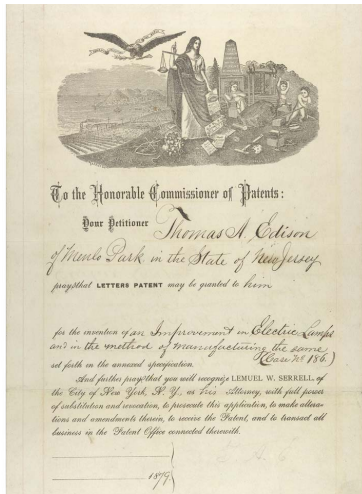 To the Honorable Commissioner of Patents:
Your Petitioner Thomas A. Edison
of Menlo Park in the State of New Jersey
prays that LETTERS PATENT may be granted to him
for the invention of an Improvement in Electric Lamps
and in the method of manufacturing the same
(Case No 186.)
set forth in the annexed specification.
And further prays that you will recognize LEMUEL W. SERRELL, of
the City of New York, N. Y. as his Attorney, with full power
of substitution and revocation, to prosecute this application, to make altera-
tions and amendments therein, to receive the Patent, and to transact all
business in the Patent Office connected therewith.
1879